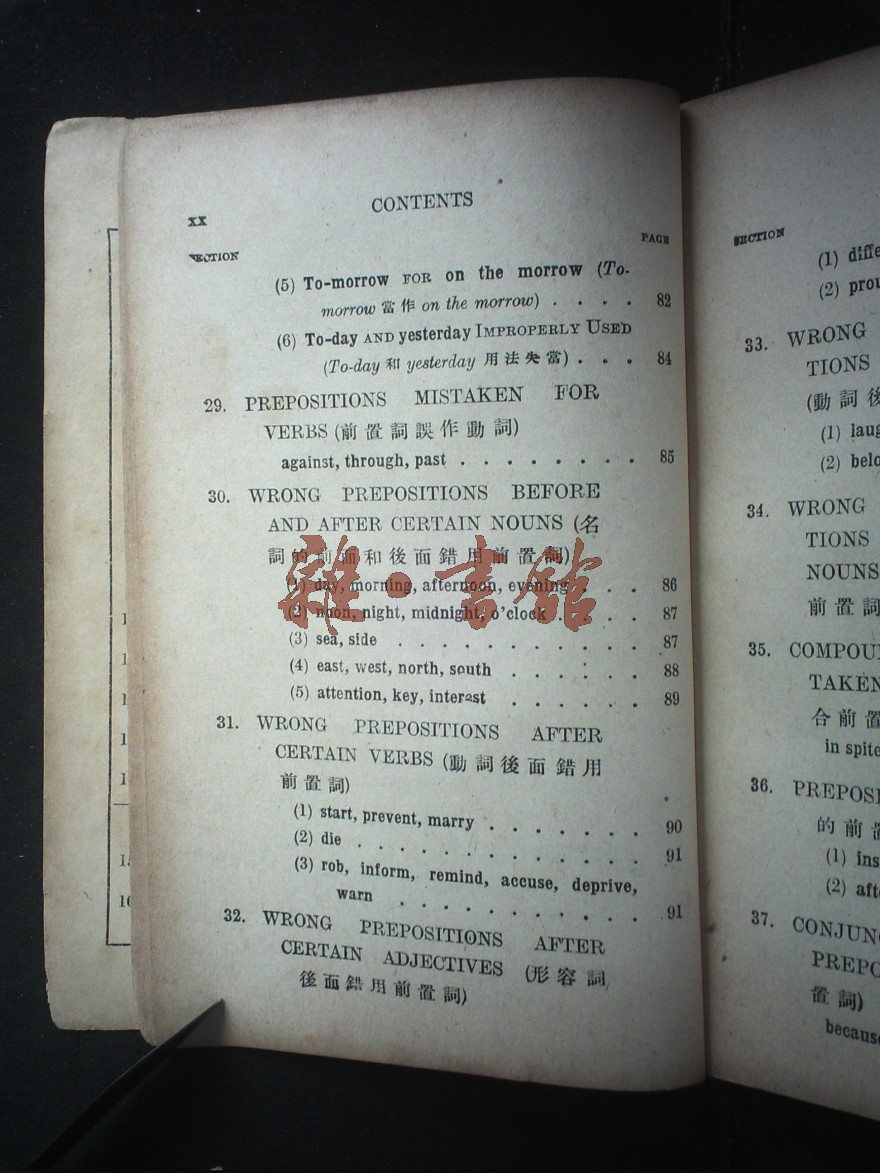 xx
CONTENTS
SECTION
PAGE
(5) To-morrow FOR on the morrow (To-
morrow 當作 on the morrow) . . . . 82
(6) To-day AND yesterday IMPROPERLY USED
(To-day 和 yesterday 用法失當) . . . 84
29. PREPOSITIONS MISTAKEN FOR
VERBS (前置詞誤作動詞)
against, through, past . . . . . . . . 85
30. WRONG PREPOSITIONS BEFORE
AND AFTER CERTAIN NOUNS (名
詞的前面和後面錯用前置詞)
(1) day, morning, afternoon, evening . . . 86
(2) noon, night, midnight, o'clock . . . . 87
(3) sea, side . . . . . . . . . . 87
(4) east, west, north, south . . . . . . 88
(5) attention, key, interest . . . . . . 89
31. WRONG PREPOSITIONS AFTER
CERTAIN VERBS (動詞後面錯用
前置詞)
(1) start, prevent, marry . . . . . . . 90
(2) die . . . . . . . . . . . . 91
(3) rob, inform, remind, accuse, deprive,
warn . . . . . . . . . . . 91
32. WRONG PREPOSITIONS AFTER
CERTAIN ADJECTIVES (形容詞
後面錯用前置詞)
雜·書館
SECTION
(1) diffe
(2) prou
33. WRONG
TIONS
(動詞後
(1) laug
(2) belo
34. WRONG
TIONS
NOUNS
前置詞
35. COMPOU
TAKEN
合前置
in spite
36. PREPOSI
的前置
(1) ins
(2) aft
37. CONJUN
PREPO
置詞)
because